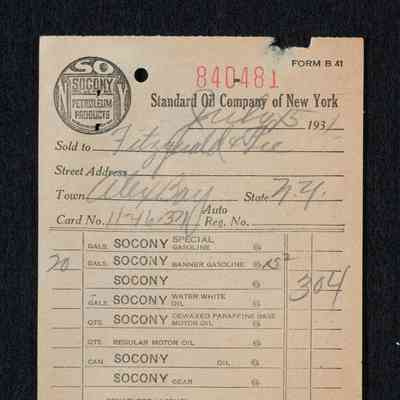 SO
SOCONY
PETROLEUM
PRODUCTS
FORM B 41
840481
Standard Oil Company of New York
July 15 1931
Sold to Fitzgerald & Lee
Street Address
Town Alex Bay State N.Y.
Card No. 11-46-37 Auto Reg. No.
GALS. SOCONY SPECIAL GASOLINE @
20 GALS. SOCONY BANNER GASOLINE @ 15² 304
SOCONY
GALS. SOCONY WATER WHITE OIL @
QTS. SOCONY DEWAXED PARAFFINE BASE MOTOR OIL @
QTS. REGULAR MOTOR OIL @
CAN SOCONY OIL @
SOCONY GEAR @